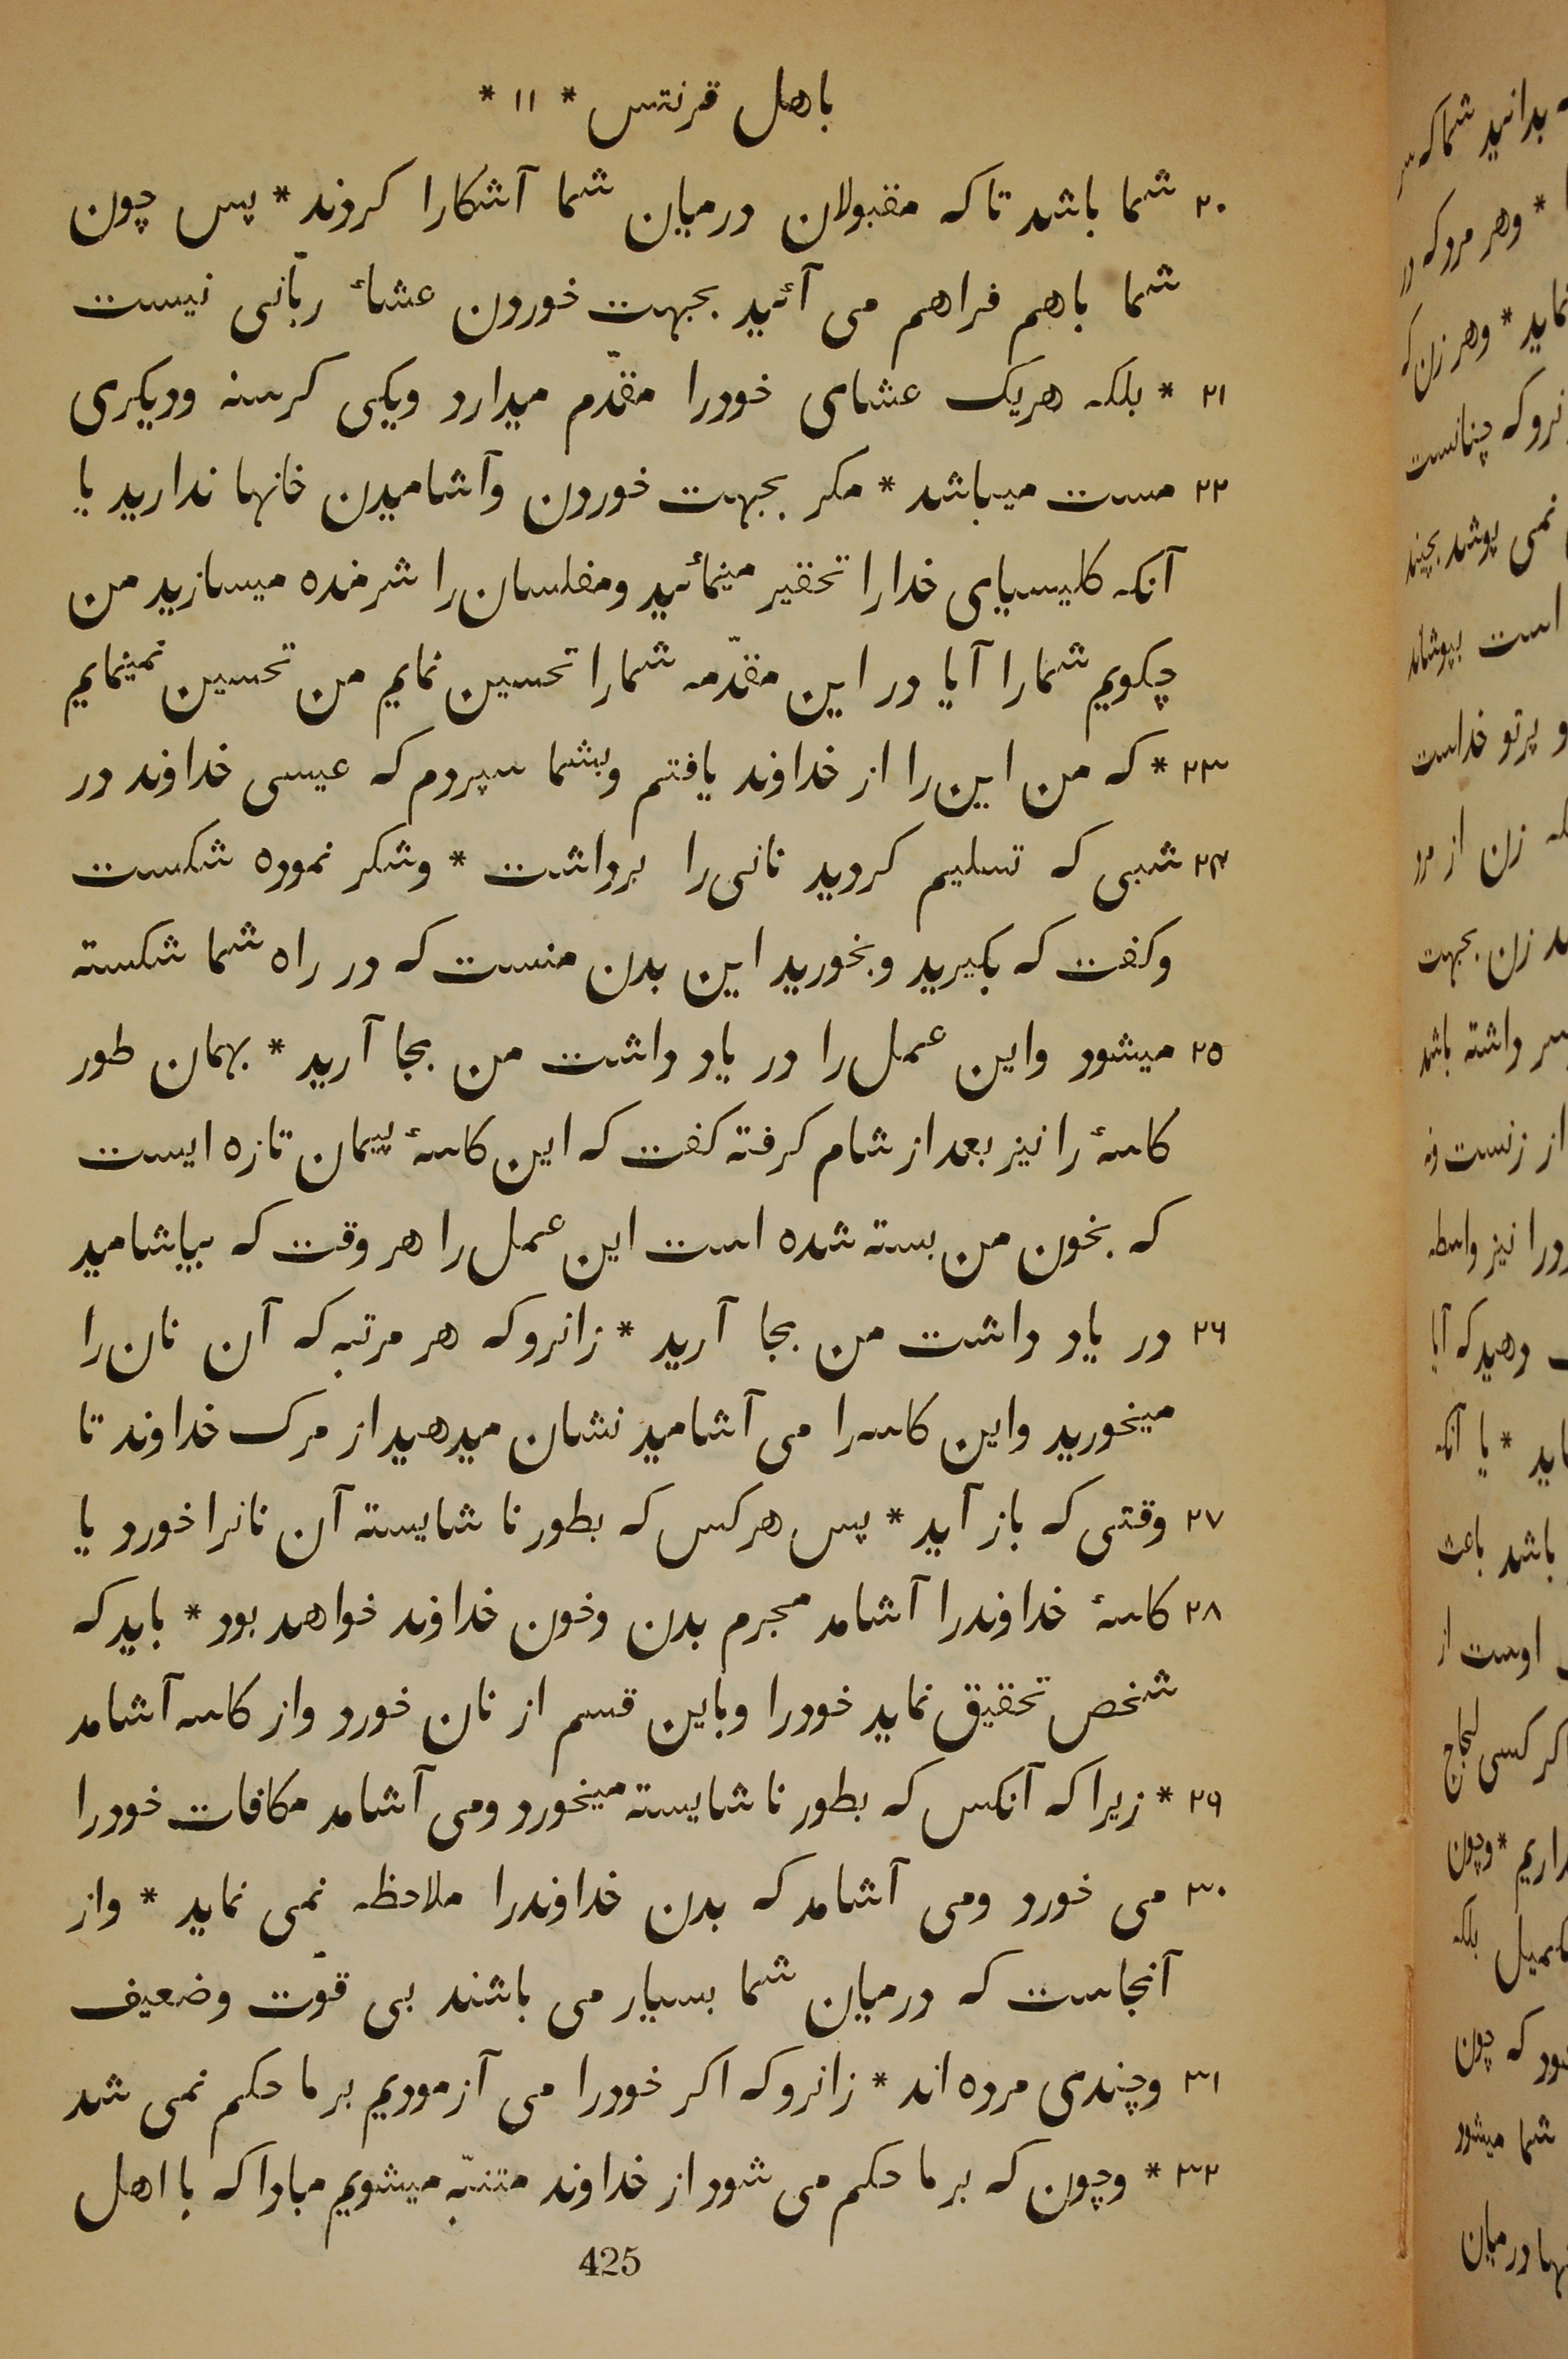 باهل قرنتس * ۱۱ *
۲۰ شما باشد تا که مقبولان درمیان شما آشکارا کردند * پس چون
شما باهم فراهم می آئید بجهت خوردن عشاء ربّانی نیست
۲۱ * بلکه هریک عشای خودرا مقدّم میدارد ویکی کرسنه ودیکری
۲۲ مست میباشد * مکر بجهت خوردن وآشامیدن خانها ندارید یا
آنکه کلیسیای خدارا تحقیر مینمائید ومفلسان را شرمنده میسازید من
چکویم شمارا آیا در این مقدّمه شمارا تحسین نمایم من تحسین نمینمایم
۲۳ * که من این را از خداوند یافتم وبشما سپردم که عیسی خداوند در
۲۴ شبی که تسلیم کردید نانی را برداشت * وشکر نموده شکست
وکفت که بکیرید وبخورید این بدن منست که در راه شما شکسته
۲۵ میشود واین عمل را در یاد داشت من بجا آرید * بهمان طور
کاسۀ را نیز بعد از شام کرفته کفت که این کاسۀ پیمان تازه ایست
که بخون من بسته شده است این عمل را هر وقت که بیاشامید
۲۶ در یاد داشت من بجا آرید * زانرو که هر مرتبه که آن نان را
میخورید واین کاسه را می آشامید نشان میدهید از مرک خداوند تا
۲۷ وقتی که باز آید * پس هرکس که بطور نا شایسته آن نانرا خورد یا
۲۸ کاسۀ خداوندرا آشامد مجرم بدن وخون خداوند خواهد بود * باید که
شخص تحقیق نماید خودرا وباین قسم از نان خورد واز کاسه آشامد
۲۹ * زیرا که آنکس که بطور نا شایسته میخورد ومی آشامد مکافات خودرا
۳۰ می خورد ومی آشامد که بدن خداوندرا ملاحظه نمی نماید * واز
آنجاست که درمیان شما بسیار می باشند بی قوّت وضعیف
۳۱ وچندی مرده اند * زانرو که اکر خودرا می آزمودیم بر ما حکم نمی شد
۳۲ * وچون که بر ما حکم می شود از خداوند متنبّه میشویم مبادا که با اهل
425